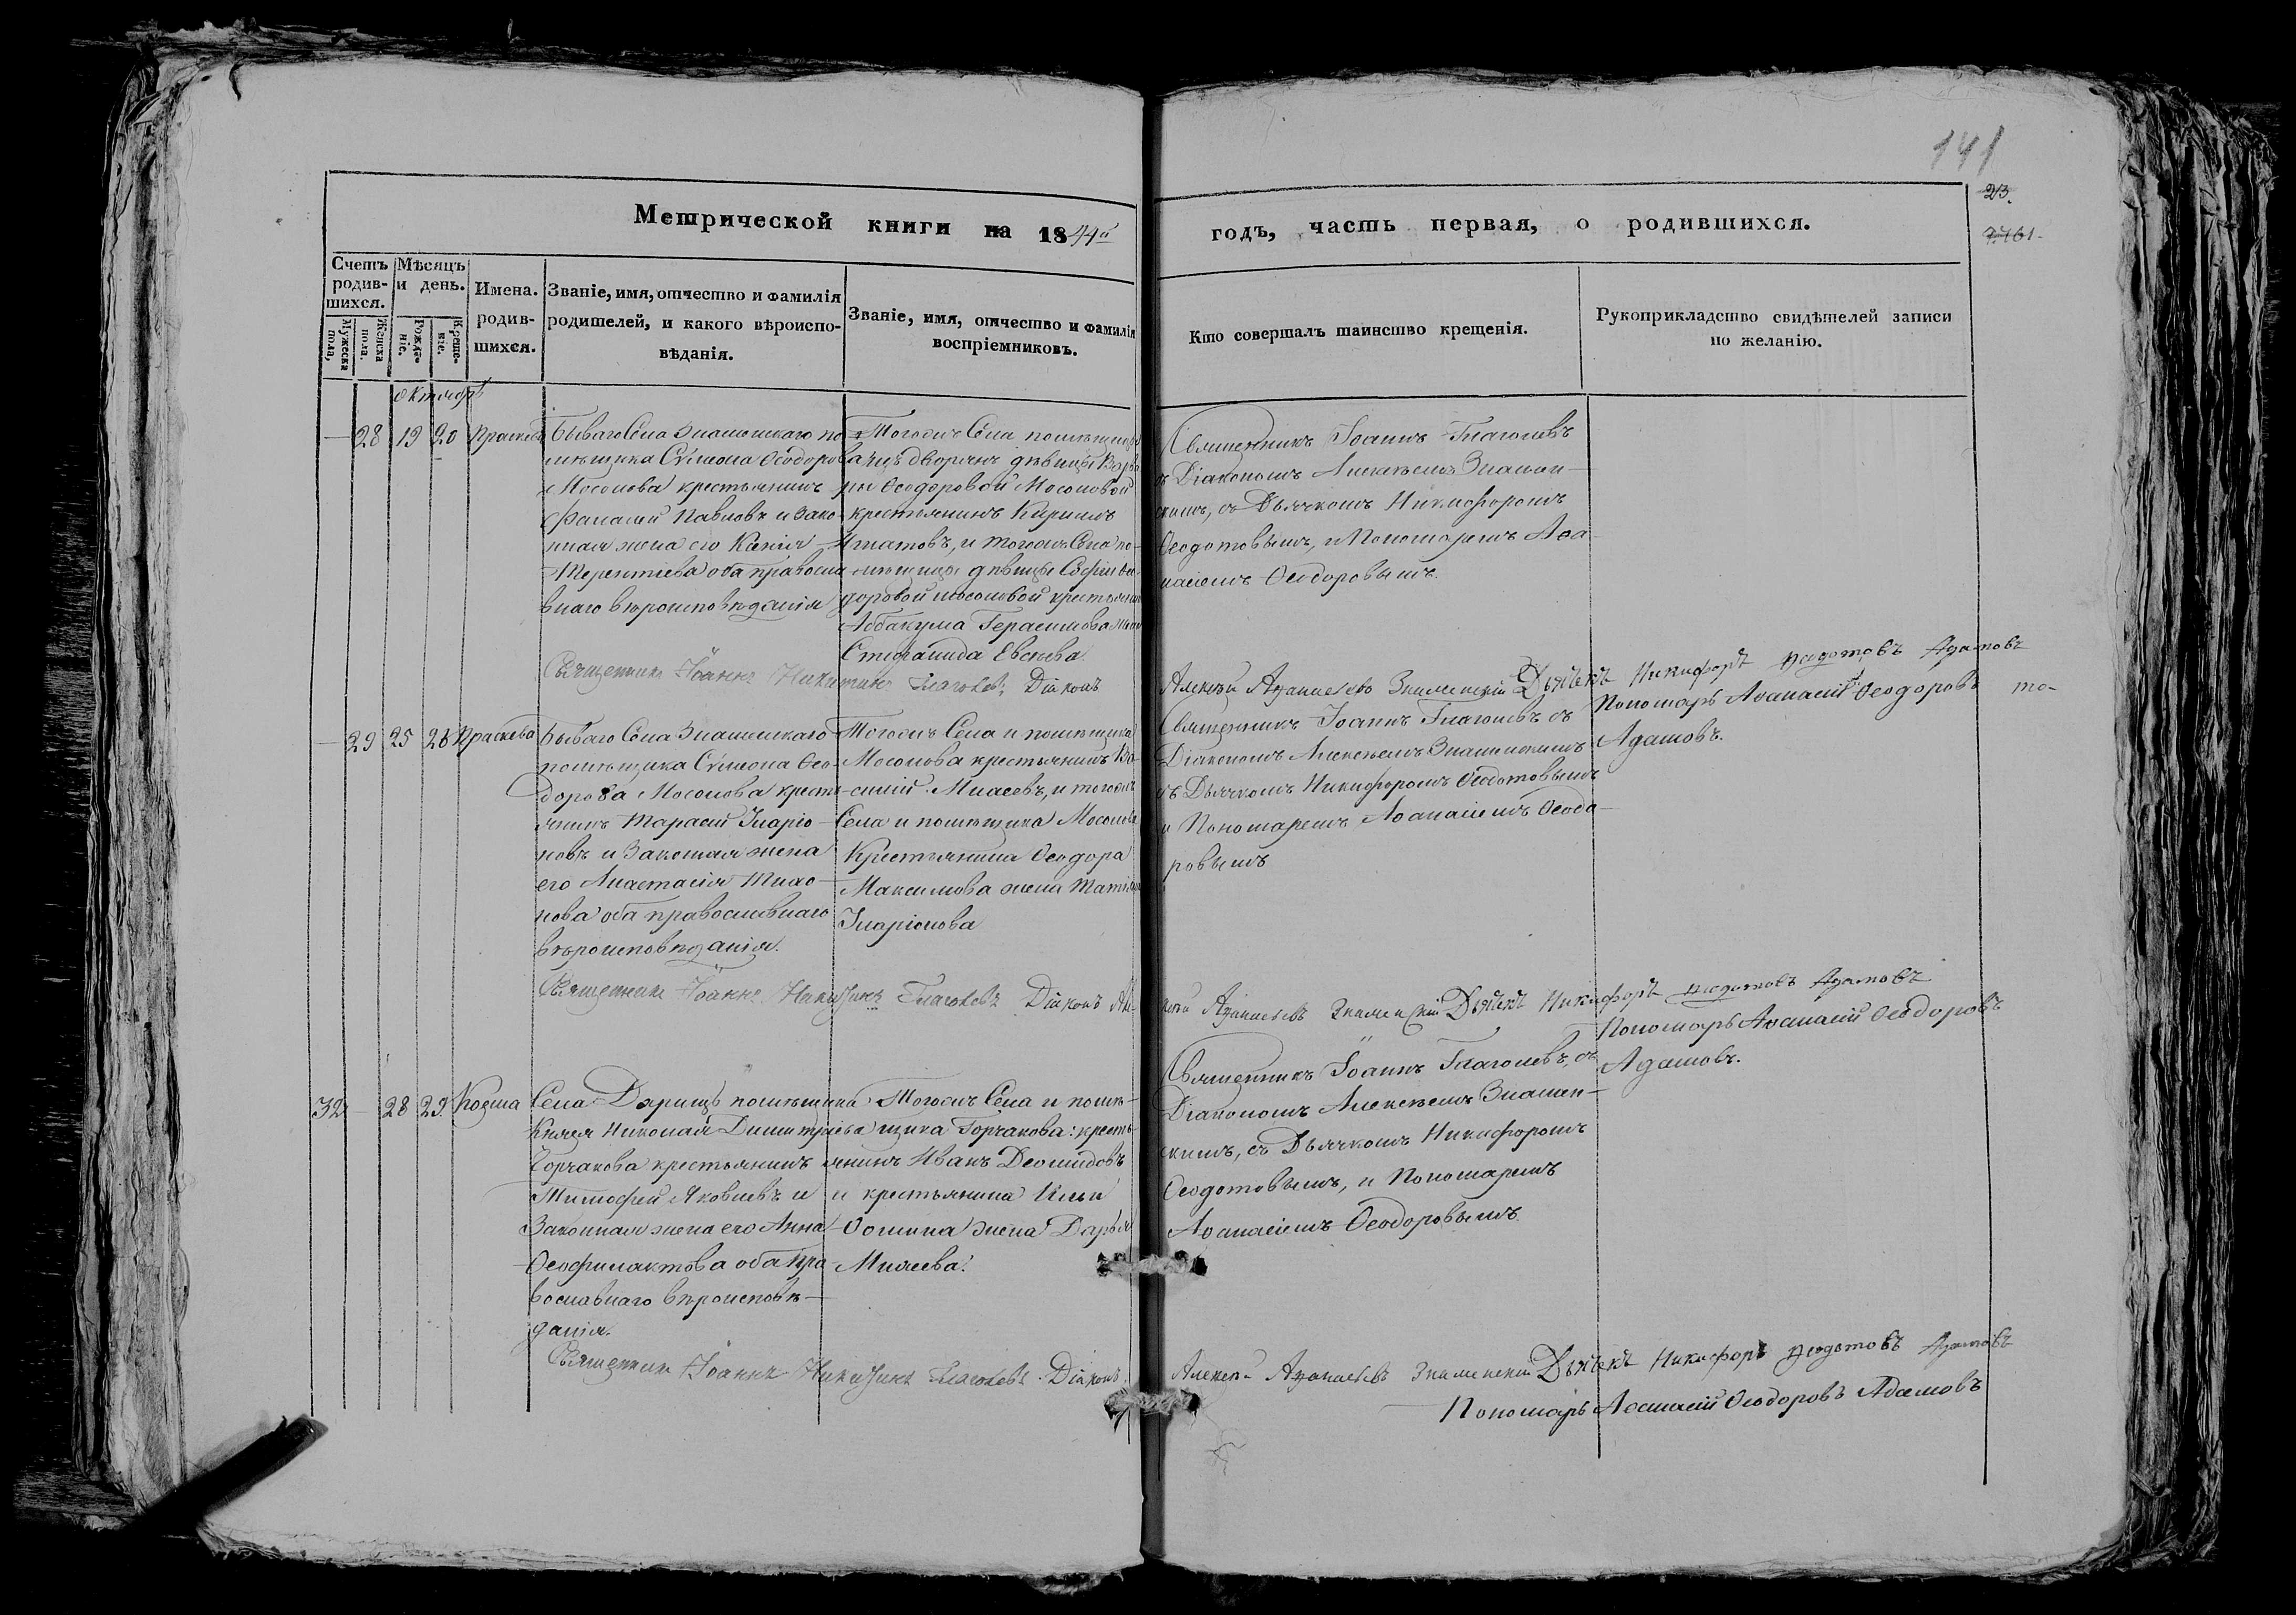 141
23.
Метрической книги на 1844й
годъ, часть первая, о родившихся.
Счетъ родив-шихся.
Мужеска пола,
Женска пола.
Мѣсяцъ и день.
Рожде-ніе.
Креще-ніе.
Имена. родив-шихся.
Званіе, имя, отчество и фамилія
родителей, и какого вѣроиспо-
вѣданія.
Званіе, имя, отчество и фамилія
воспріемниковъ.
Кто совершалъ таинство крещенія.
Рукоприкладство свидѣтелей записи
по желанію.
октябрь
28 19 20 Праскева
Бываго Села Знаменскаго по-
мѣщика Сѵмеона Ѳеодоров
Мосолова крестьянинъ
Фалалей Павловъ и Зако-
нная жена его Ксенія
Терентіева оба правосла
внаго вѣроисповѣданія
Тогожъ Села помѣщицы
изъ дворянъ дѣвицы Варва
ры Ѳеодоровой Мосоловой
крестьянинъ Кирилъ
Игнатовъ, и тогожъ Села по-
мѣщицы дѣвицы Софіи Ѳео
доровой Мосоловой крестьянина
Аббакума Герасимова жена
Стефанида Евсѣева.
Священникъ Іоаннъ Глаголевъ
съ Діакономъ Алексѣемъ Знамен-
скимъ, съ Дьячкомъ Никифоромъ
Ѳеодотовымъ, и Пономаремъ Аѳа-
насіемъ Ѳеодоровымъ.
Священникъ Іоаннъ Никитинъ Глаголевъ, Діаконъ
Алексѣй Знаменскій Дьячекъ Никифоръ Ѳеодотовъ Адамовъ
Пономарь Аѳанасій Ѳеодоровъ
Адамовъ.
29 25 26 Праскева
Бываго Села Знаменскаго
помѣщика Сѵмеона Ѳео-
дорова Мосолова кресть-
янинъ Тарасій Иларіо-
новъ и Законная жена
его Анастасія
нова оба православнаго
вѣроисповѣданія.
Тогожъ Села и помѣщика
Мосолова крестьянинъ Ва-
силій Миаевъ, и тогожъ
Села и помѣщика Мосолова
Крестьянина Ѳеодора
Максимова жена Татіана
Иларіонова
Священникъ Іоаннъ Глаголевъ съ
Діакономъ Алексѣемъ Знаменскимъ
съ Дьячкомъ Никифоромъ Ѳеодотовымъ
и Пономаремъ Аѳанасіемъ Ѳеодо-
ровымъ
Священникъ Іоаннъ Никитинъ Глаголевъ Діаконъ Але-
ксѣй Знаменскій Дьячекъ Никифоръ Ѳеодотовъ Адамовъ
Пономарь Аѳанасій Ѳеодоровъ
Адамовъ.
32 28 29 Козма
Села Дарищъ помѣщика
Князя Николая Димитріева
Горчакова крестьянинъ
Тимофей Яковлевъ и
Законная жена его Анна
Ѳеофилактова оба пра-
вославнаго вѣроисповѣ-
данія.
Тогожъ Села и помѣ-
щика Горчакова: кресть-
янинъ Иванъ Деомидовъ
и крестьянина Ильи
Ѳомина жена Дарья
Миаева.
Священникъ Іоаннъ Глаголевъ, съ
Діакономъ Алексѣемъ Знамен-
скимъ, съ Дьячкомъ Никифоромъ
Ѳеодотовымъ, и Пономаремъ
Аѳанасіемъ Ѳеодоровымъ.
Священникъ Іоаннъ Никитинъ Глаголевъ. Діаконъ
Алексѣй Знаменскій Дьячекъ Никифоръ Ѳеодотовъ Адамовъ
Пономарь Аѳанасій Ѳеодоровъ Адамовъ